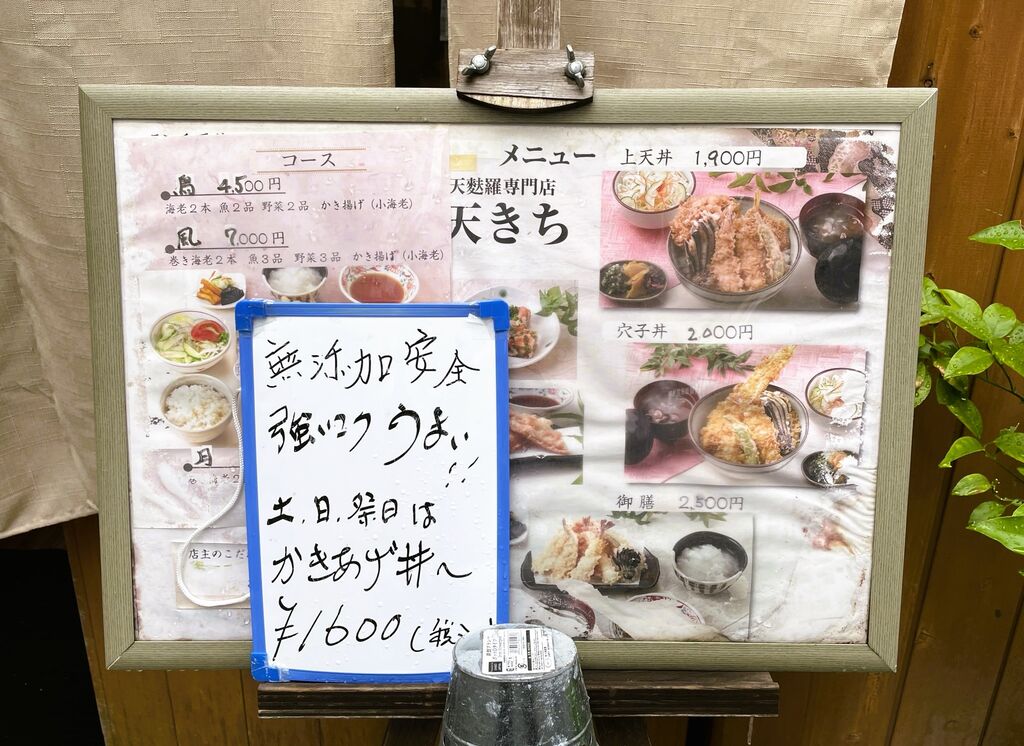 コース
鳥 4,500円
海老2本 魚2品 野菜2品 かき揚げ(小海老)
風 7,000円
巻き海老2本 魚3品 野菜3品 かき揚げ(小海老)
月
店主のこだ
メニュー
天麩羅専門店
天きち
上天丼 1,900円
穴子丼 2,000円
御膳 2,500円
無添加安全
強いコクうまい!!
土.日.祭日は
かきあげ丼〜
¥1600(税